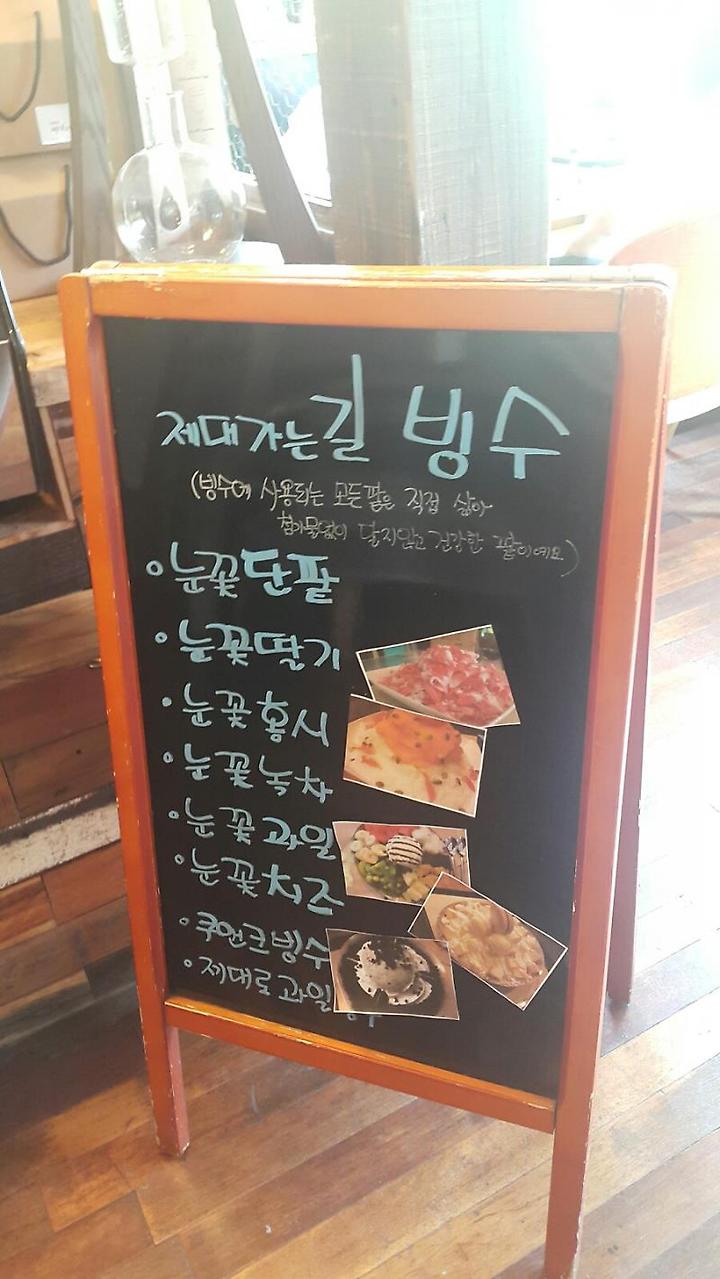 제대가는길 빙수
(빙수에 사용되는 모든 팥은 직접 삶아
첨가물없이 달지않고 건강한 팥이예요)
눈꽃단팥
눈꽃딸기
눈꽃홍시
눈꽃녹차
눈꽃과일
눈꽃치즈
쿠앤크빙수
제대로과일